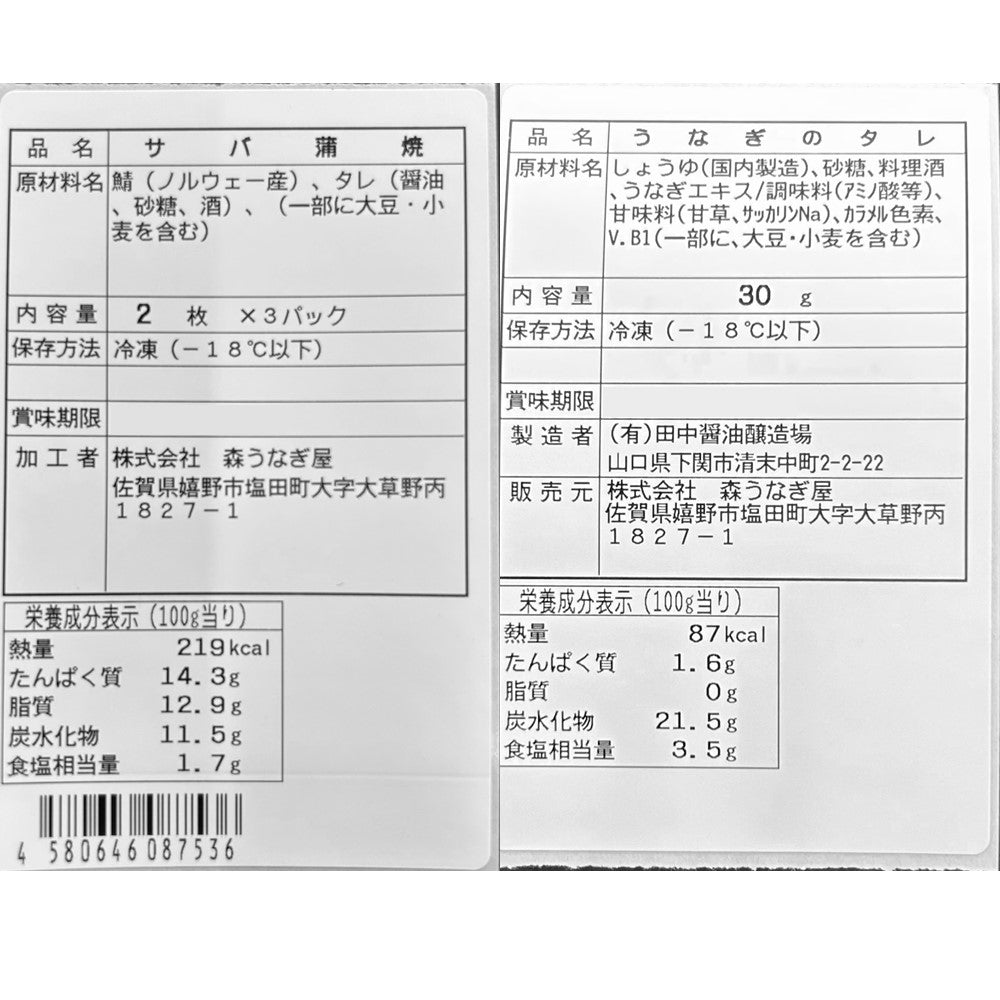 品名 サバ蒲焼
原材料名 鯖（ノルウェー産）、タレ（醤油
、砂糖、酒）、（一部に大豆・小
麦を含む）
内容量 2 枚 ×３パック
保存方法 冷凍（－１８℃以下）
賞味期限
加工者 株式会社 森うなぎ屋
佐賀県嬉野市塩田町大字大草野丙
１８２７－１
栄養成分表示（100g当り）
熱量 219kcal
たんぱく質 14.3g
脂質 12.9g
炭水化物 11.5g
食塩相当量 1.7g
4 580646 087536
品名 うなぎのタレ
原材料名 しょうゆ(国内製造)、砂糖、料理酒
、うなぎエキス/調味料(アミノ酸等)、
甘味料(甘草、サッカリンNa)、カラメル色素、
V.B1(一部に、大豆・小麦を含む)
内容量 30 g
保存方法 冷凍（－１８℃以下）
賞味期限
製造者 (有)田中醤油醸造場
山口県下関市清末中町2-2-22
販売元 株式会社 森うなぎ屋
佐賀県嬉野市塩田町大字大草野丙
１８２７－１
栄養成分表示（100g当り）
熱量 87kcal
たんぱく質 1.6g
脂質 0g
炭水化物 21.5g
食塩相当量 3.5g